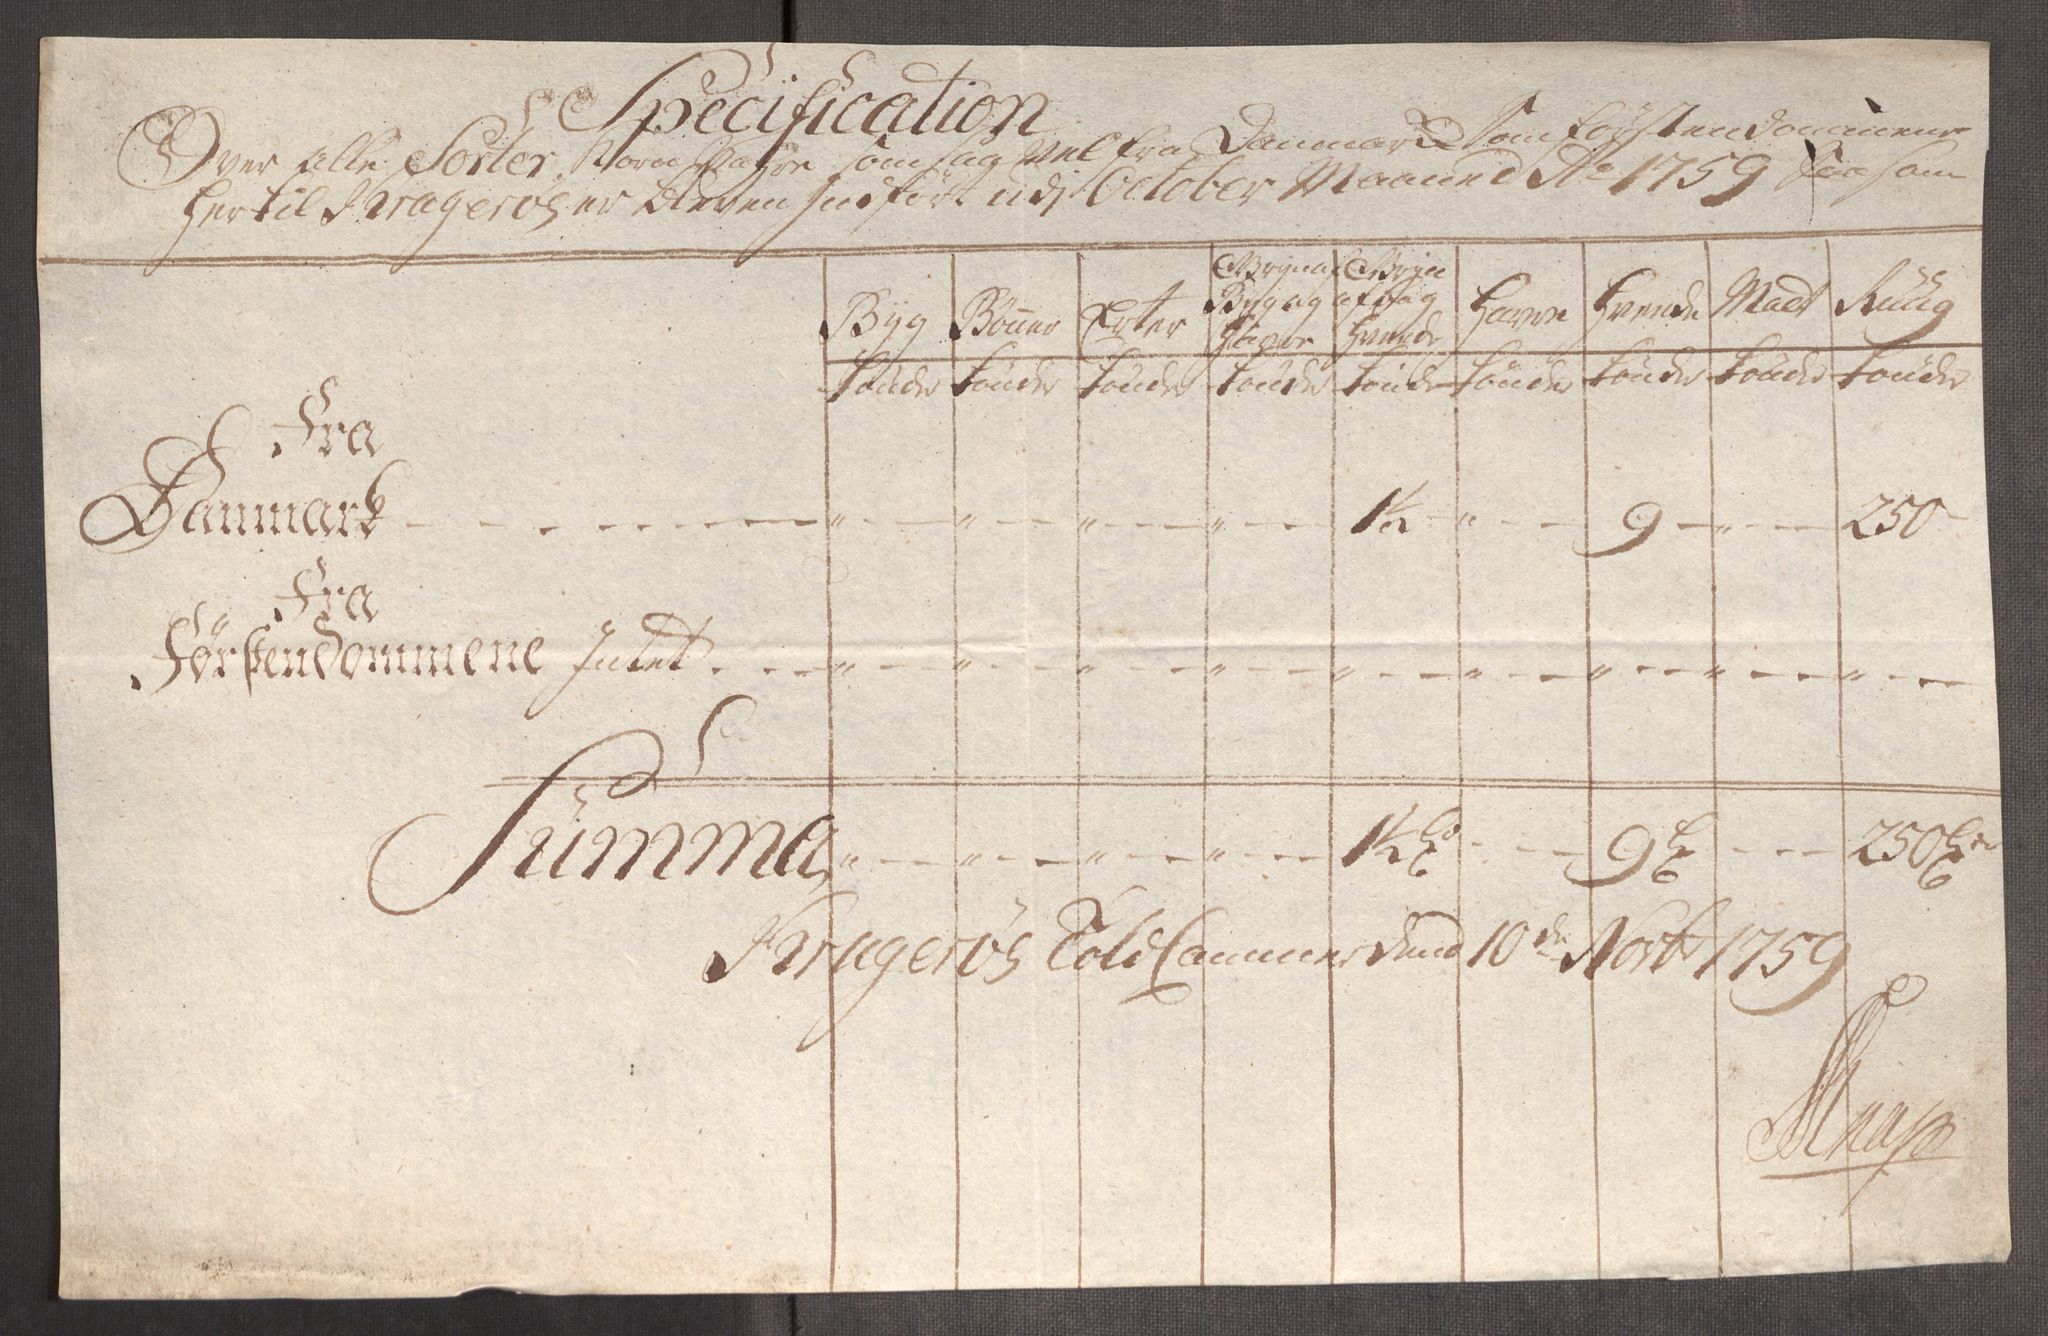 Specification
Over alle Sorter Korn Vahre som saavel fra Danmark som Førstendommene
hertil Kragerøe er bleven Indført udj October Maaned Ao 1759 Saasom
Byg Bønner Erter Gryn af Byg og Havre Gryn af Byg Hvede Havre Hvede Malt Rüug
Tønder Tønder Tønder Tønder Tønder Tønder Tønder Tønder Tønder
Fra
Danmark 1½ 9 250
Fra
Førstendommene Intet
Summa 1½ 9 250
Kragerøes Told Cammer dend 10de Novbr 1759